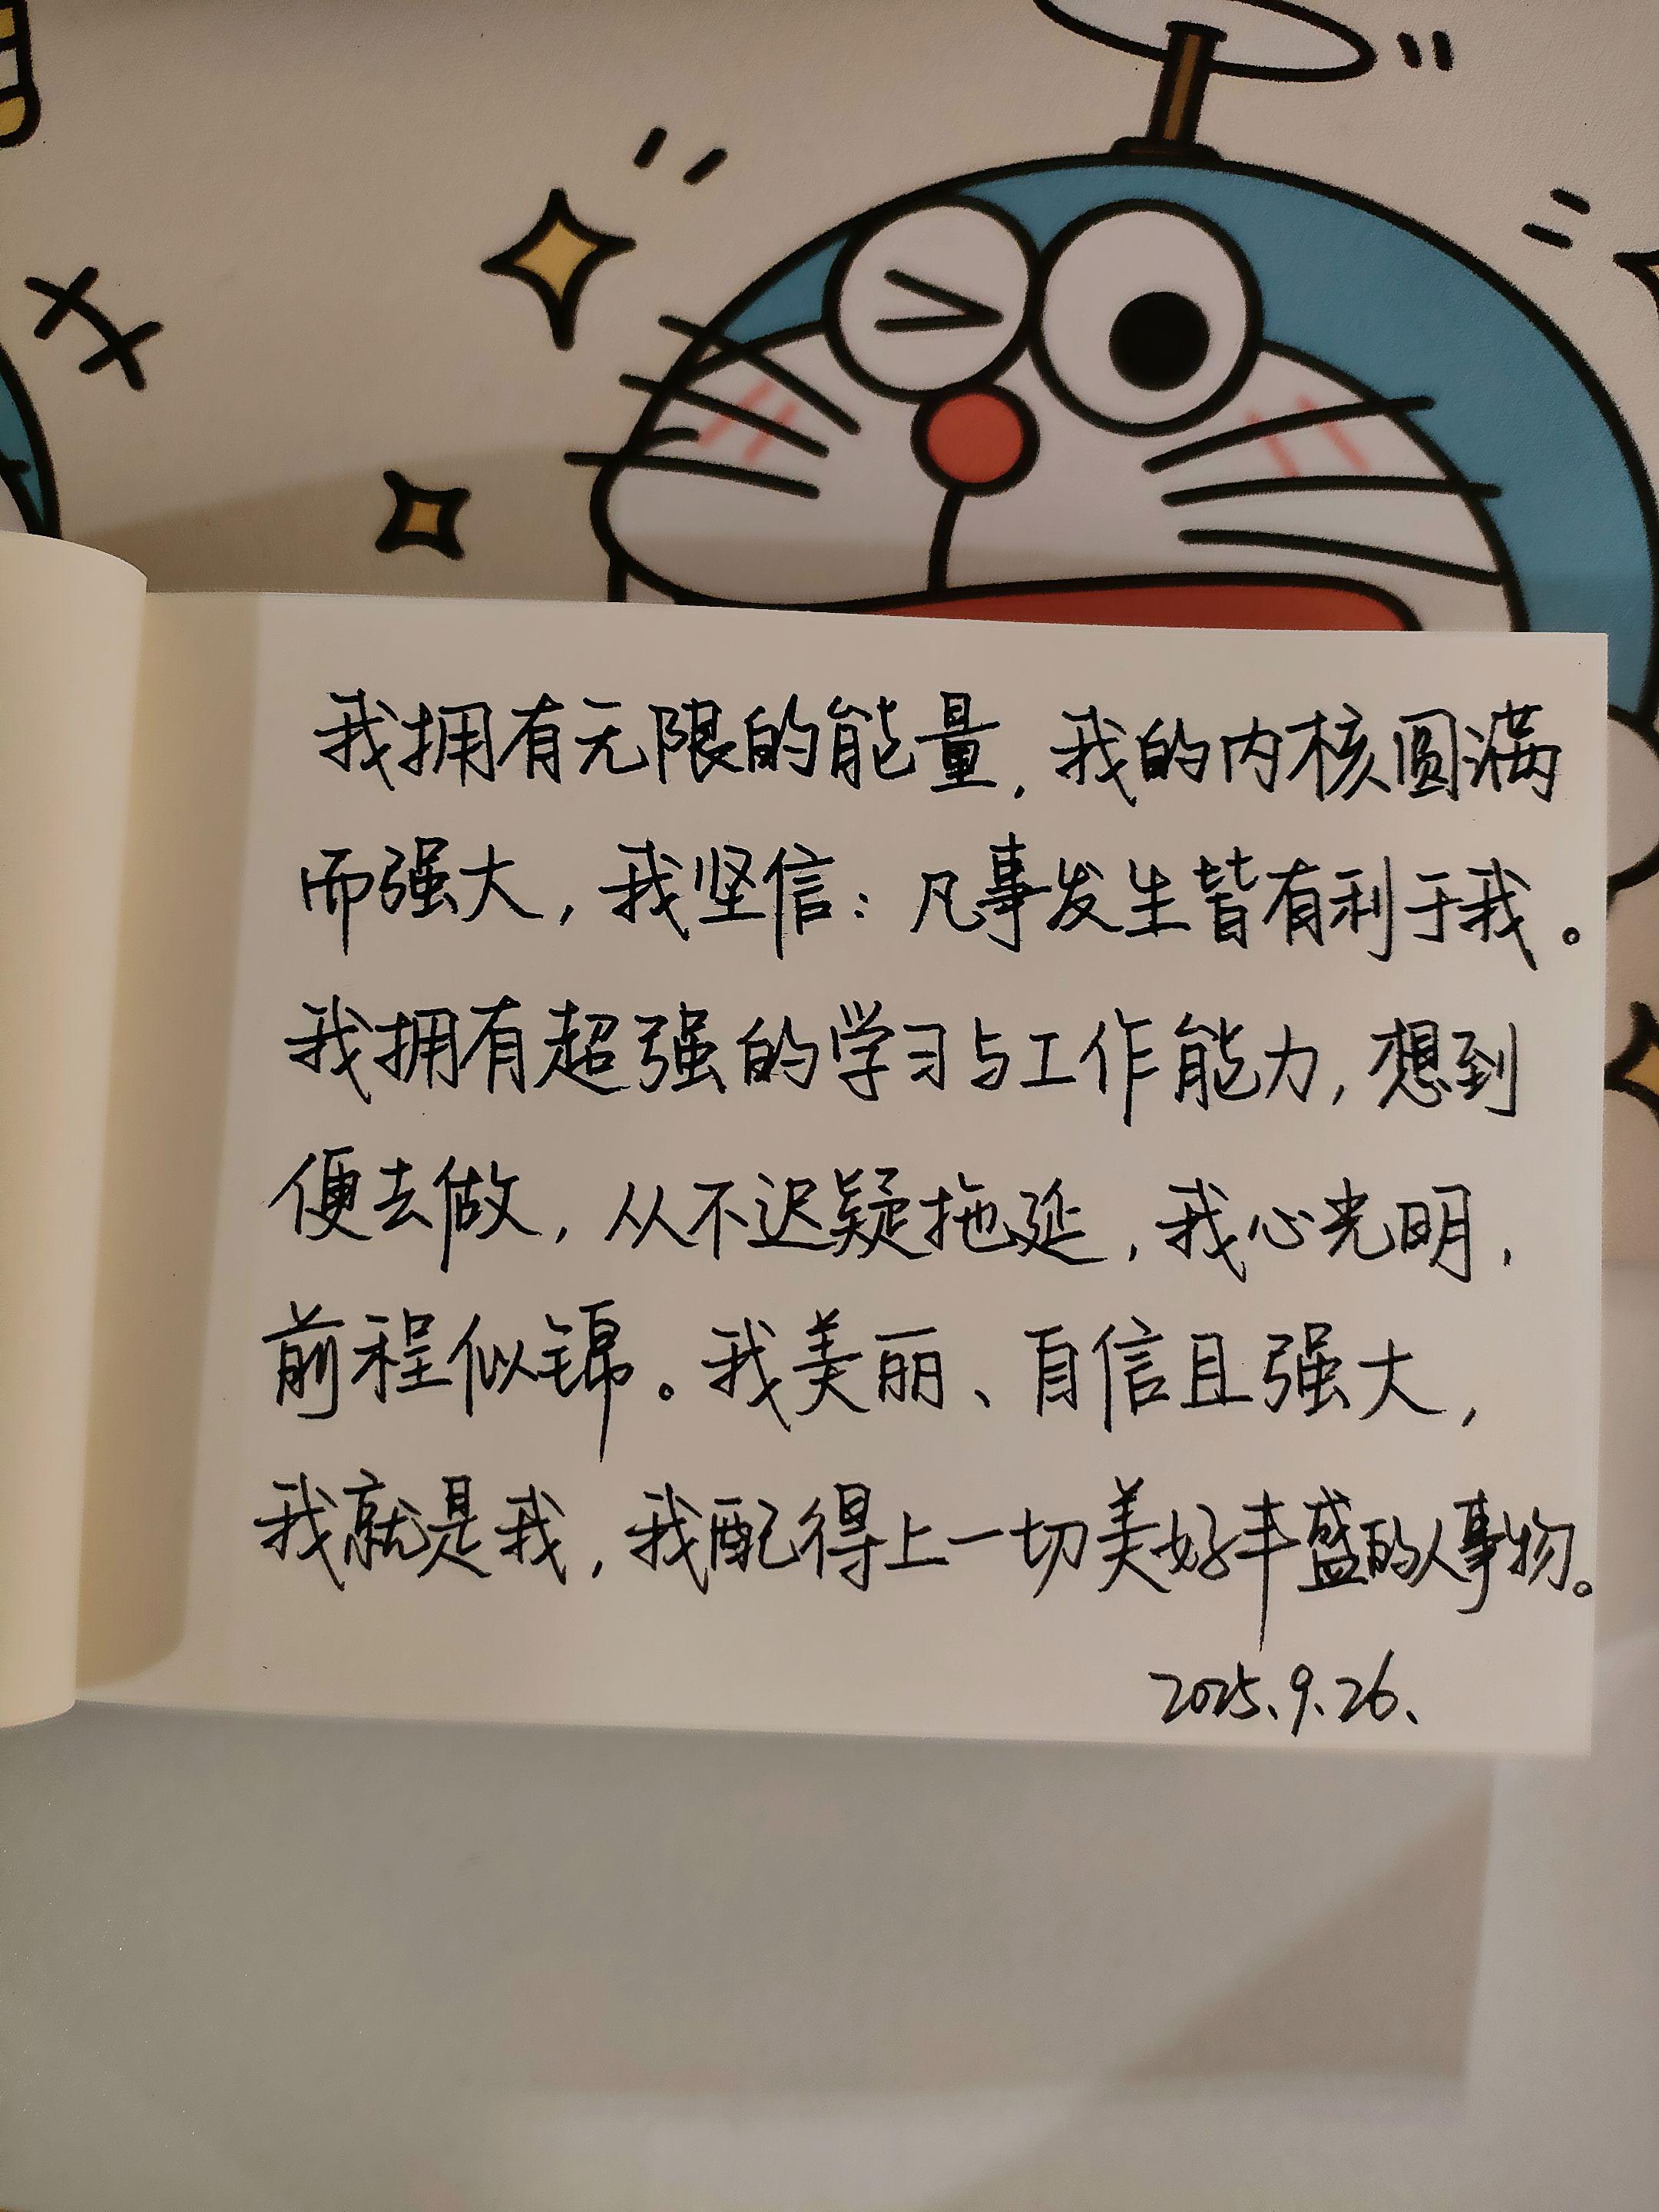 我拥有无限的能量，我的内核圆满
而强大，我坚信：凡事发生皆有利于我。
我拥有超强的学习与工作能力，想到
便去做，从不迟疑拖延，我心光明，
前程似锦。我美丽、自信且强大，
我就是我，我配得上一切美好丰盛的人事物。
2025.9.26.